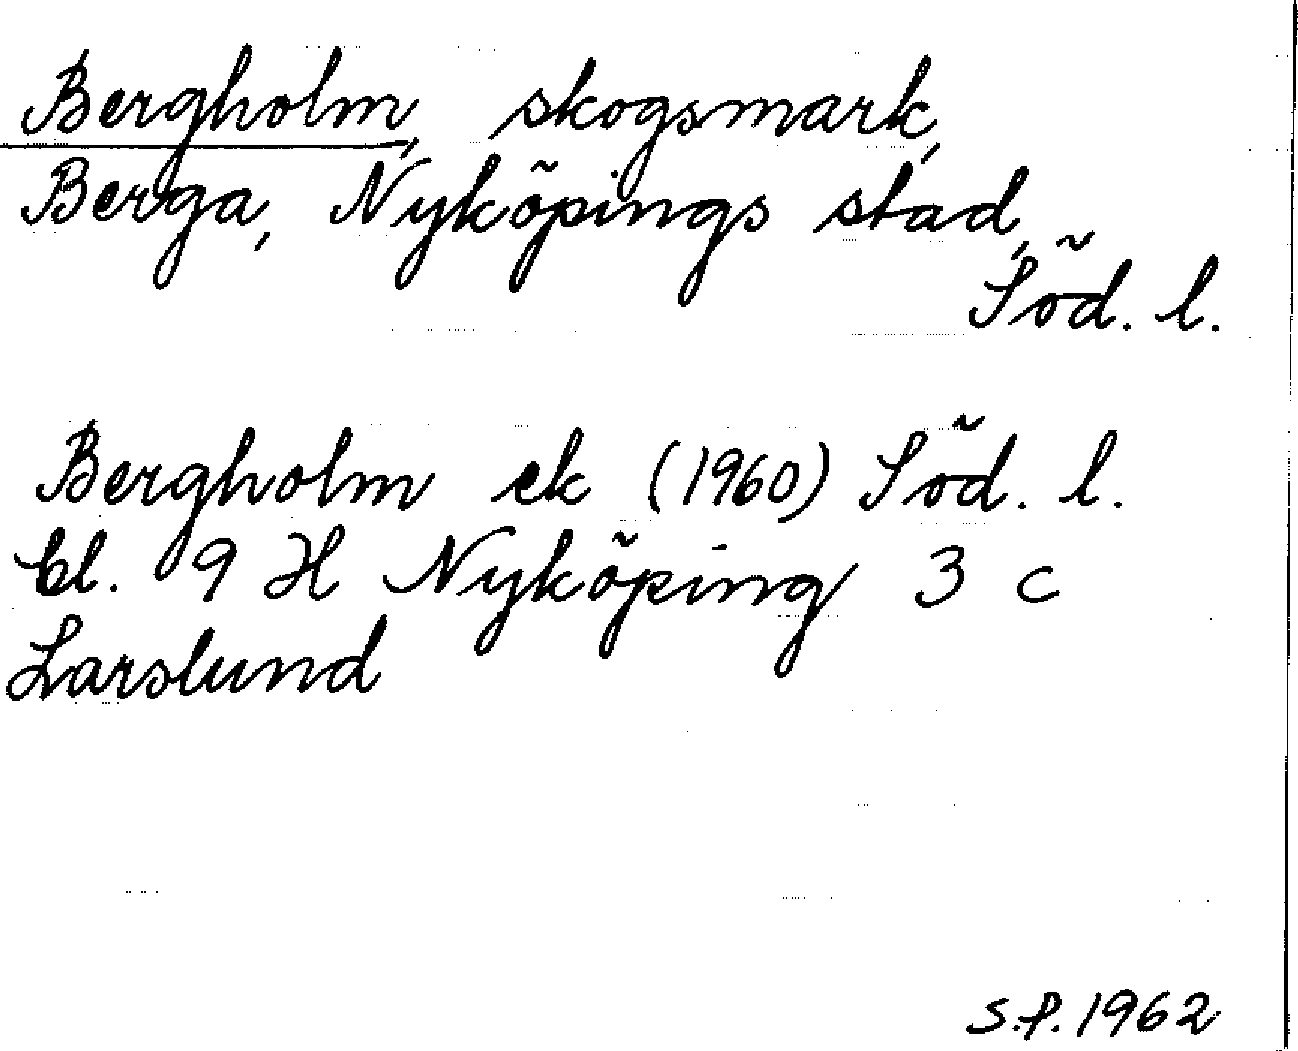 Bergholm, skogsmark,
Berga, Nyköpings stad,
Söd. l.
Bergholm ek (1960) Söd. l.
bl. 9 H Nyköping 3 c
Larslund
S.P. 1962